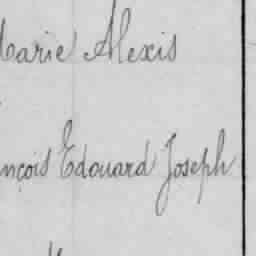 Marie Alexis
nçois Edouard Joseph